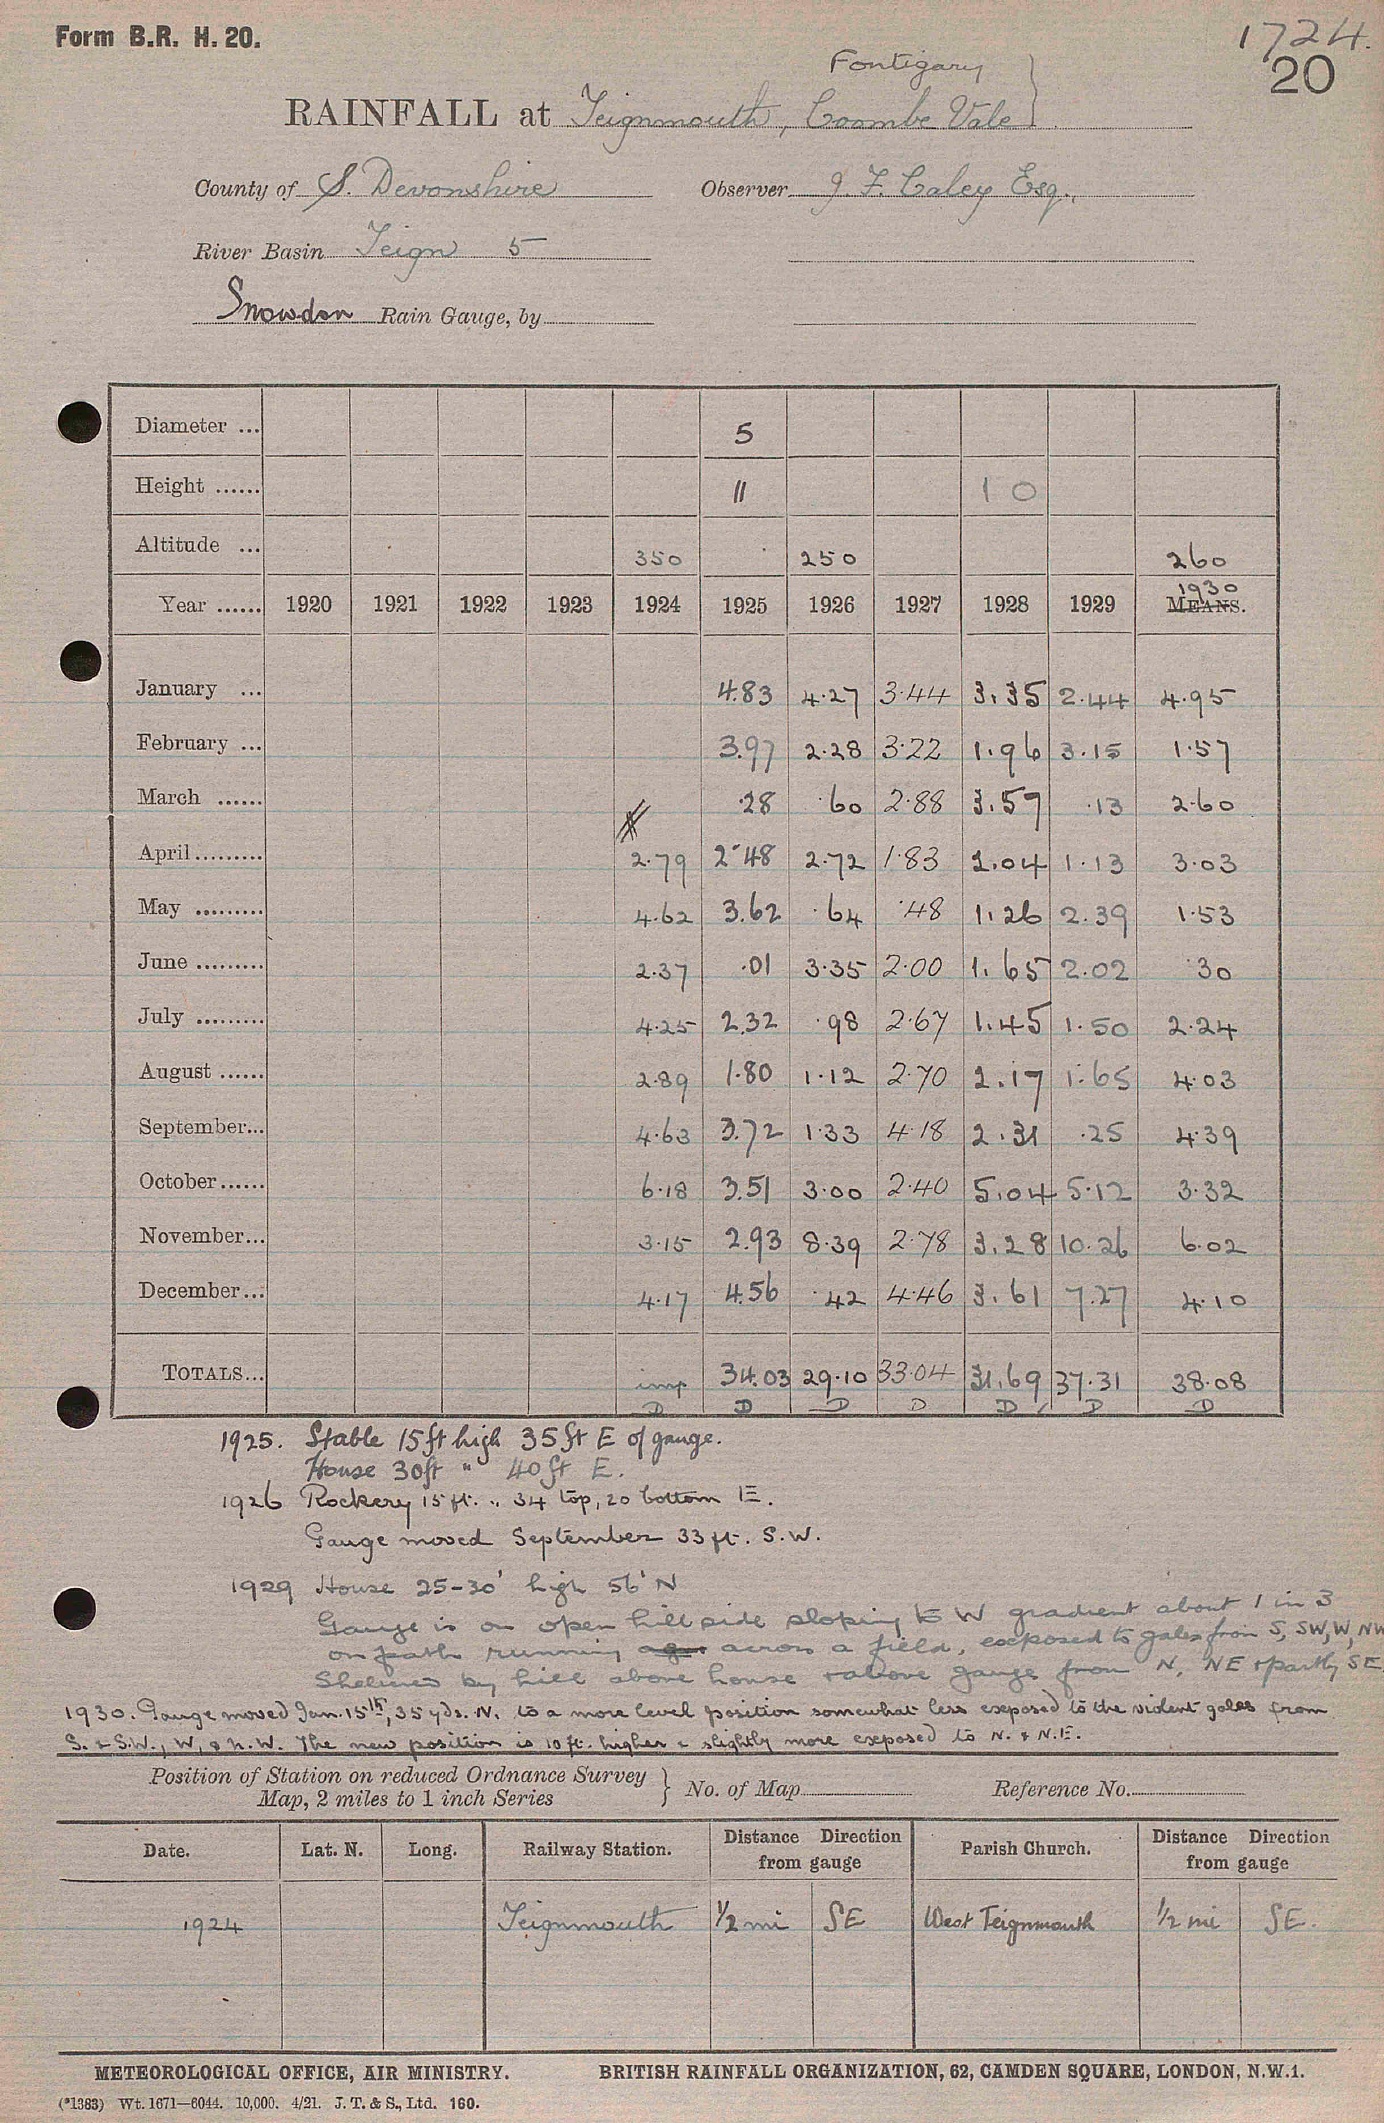 Form B.R. H. 20.
1724.
20
Fontigary
RAINFALL at Teignmouth, Coombe Vale }
County of S. Devonshire Observer J. F. Caley Esq.,
River Basin Teign 5
Snowdon Rain Gauge, by
Diameter ... 5
Height ...... 11 10
Altitude ... 350 250 260
1930
Year ...... 1920 1921 1922 1923 1924 1925 1926 1927 1928 1929 MEANS.
January ... 4.83 4.27 3.44 3.35 2.44 4.95
February ... 3.97 2.28 3.22 1.96 3.15 1.57
March ...... .28 .60 2.88 3.57 .13 2.60
April......... 2.79 2.48 2.72 1.83 2.04 1.13 3.03
May ......... 4.62 3.62 .64 .48 1.26 2.39 1.53
June ......... 2.37 .01 3.35 2.00 1.65 2.02 .30
July ......... 4.25 2.32 .98 2.67 1.45 1.50 2.24
August ...... 2.89 1.80 1.12 2.70 2.17 1.65 4.03
September... 4.63 3.72 1.33 4.18 2.31 .25 4.39
October...... 6.18 3.51 3.00 2.40 5.04 5.12 3.32
November... 3.15 2.93 8.39 2.78 3.28 10.26 6.02
December... 4.17 4.56 .42 4.46 3.61 7.27 4.10
TOTALS... imp 34.03 29.10 33.04 31.69 37.31 38.08
D D D D D D D
1925. Stable 15ft high 35ft E of gauge.
House 30ft " 40ft E.
1926 Rockery 15ft. " 34 top, 20 bottom E.
Gauge moved September 33 ft. S.W.
1929 House 25-30' high 56' N
Gauge is on open hill side sloping to W gradient about 1 in 3
on path running across a field, exposed to gales from S, SW, W, NW
Sheltered by hill above house + above gauge from N, NE + partly SE
1930. Gauge moved Jan. 15th, 35 yds. N. to a more level position somewhat less exposed to the violent gales from
S. & S.W., W, & N.W. The new position is 10 ft. higher & slightly more exposed to N. & N.E.
Position of Station on reduced Ordnance Survey
Map, 2 miles to 1 inch Series } No. of Map Reference No.
Date. Lat. N. Long. Railway Station. Distance Direction from gauge Parish Church. Distance Direction from gauge
1924 Teignmouth 1/2 mi SE West Teignmouth 1/2 mi SE.
METEOROLOGICAL OFFICE, AIR MINISTRY. BRITISH RAINFALL ORGANIZATION, 62, CAMDEN SQUARE, LONDON, N.W.1.
(*1383) Wt. 1671—6044. 10,000. 4/21. J. T. & S., Ltd. 160.